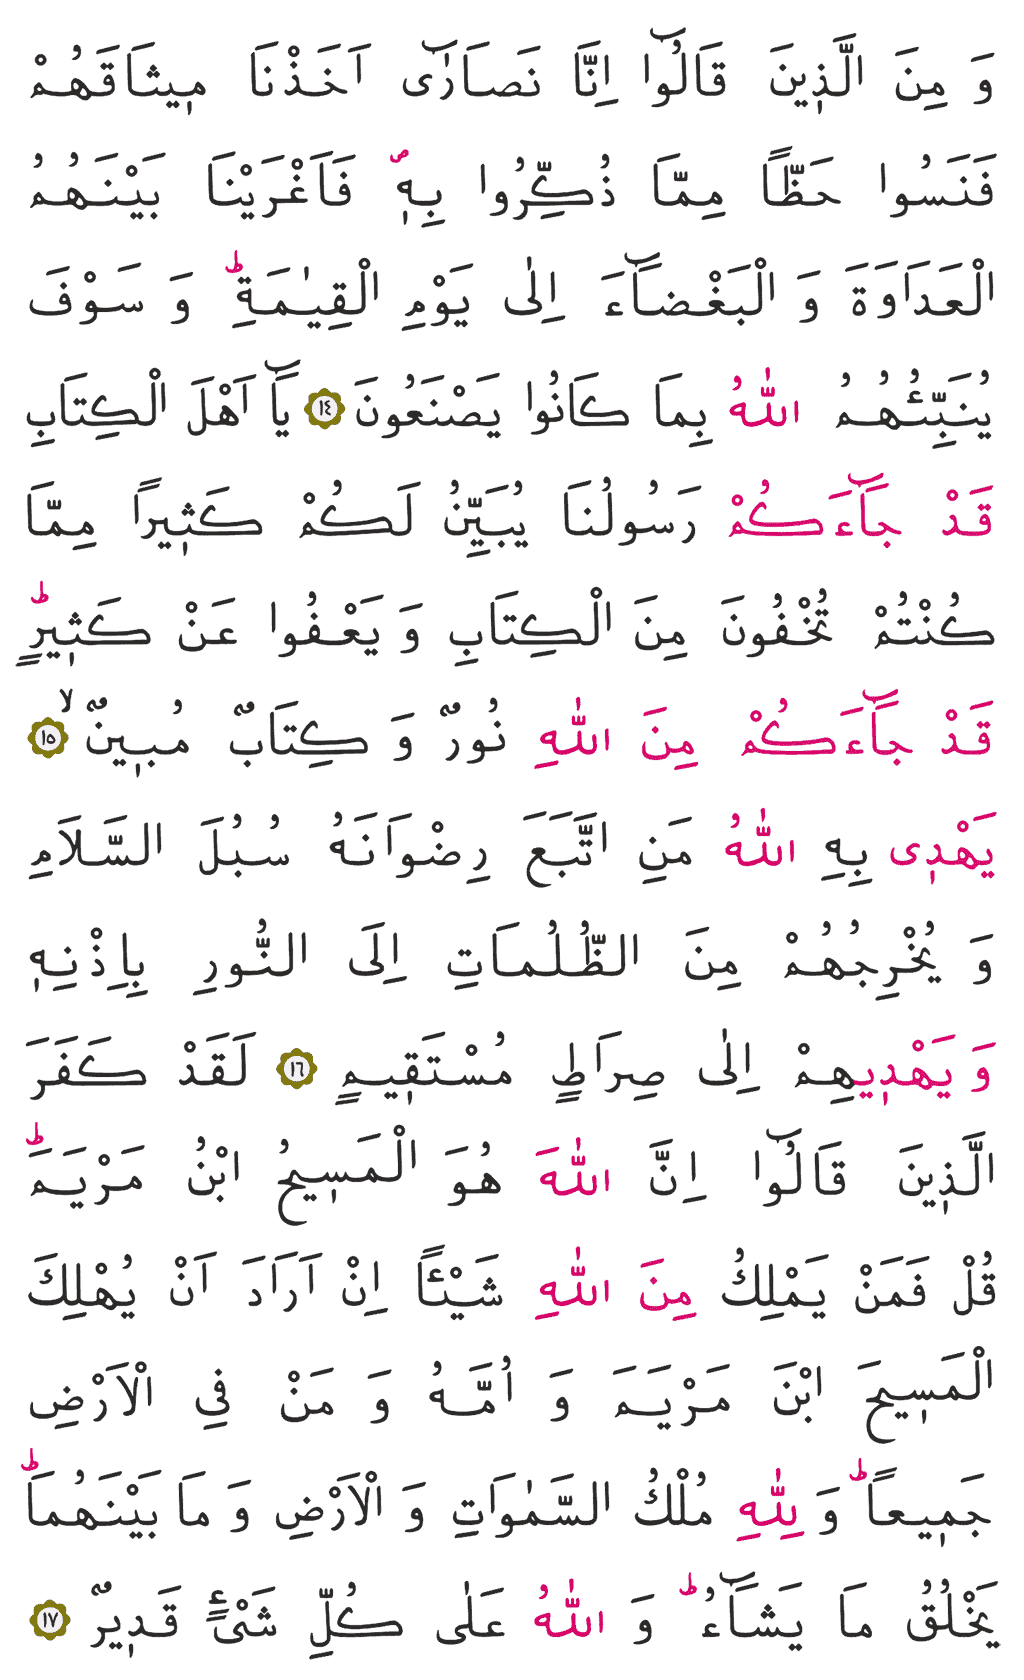 وَ مِنَ الَّذٖينَ قَالُٓوا اِنَّا نَصَارٰٓى اَخَذْنَا مٖيثَاقَهُمْ
فَنَسُوا حَظًّا مِمَّا ذُكِّرُوا بِهٖۖ فَاَغْرَيْنَا بَيْنَهُمُ
الْعَدَاوَةَ وَ الْبَغْضَٓاءَ اِلٰى يَوْمِ الْقِيٰمَةِؕ وَ سَوْفَ
يُنَبِّئُهُمُ اللّٰهُ بِمَا كَانُوا يَصْنَعُونَ ﴿١٤﴾ يَٓا اَهْلَ الْكِتَابِ
قَدْ جَٓاءَكُمْ رَسُولُنَا يُبَيِّنُ لَكُمْ كَثٖيرًا مِمَّا
كُنْتُمْ تُخْفُونَ مِنَ الْكِتَابِ وَ يَعْفُوا عَنْ كَثٖيرٍؕ
قَدْ جَٓاءَكُمْ مِنَ اللّٰهِ نُورٌ وَ كِتَابٌ مُبٖينٌۙ ﴿١٥﴾
يَهْدٖى بِهِ اللّٰهُ مَنِ اتَّبَعَ رِضْوَانَهُ سُبُلَ السَّلَامِ
وَ يُخْرِجُهُمْ مِنَ الظُّلُمَاتِ اِلَى النُّورِ بِاِذْنِهٖ
وَ يَهْدٖيهِمْ اِلٰى صِرَاطٍ مُسْتَقٖيمٍ ﴿١٦﴾ لَقَدْ كَفَرَ
الَّذٖينَ قَالُٓوا اِنَّ اللّٰهَ هُوَ الْمَسٖيحُ ابْنُ مَرْيَمَؕ
قُلْ فَمَنْ يَمْلِكُ مِنَ اللّٰهِ شَيْئًا اِنْ اَرَادَ اَنْ يُهْلِكَ
الْمَسٖيحَ ابْنَ مَرْيَمَ وَ اُمَّهُ وَ مَنْ فِى الْاَرْضِ
جَمٖيعًاؕ وَ لِلّٰهِ مُلْكُ السَّمٰوَاتِ وَ الْاَرْضِ وَ مَا بَيْنَهُمَاؕ
يَخْلُقُ مَا يَشَٓاءُؕ وَ اللّٰهُ عَلٰى كُلِّ شَىْءٍ قَدٖيرٌ ﴿١٧﴾